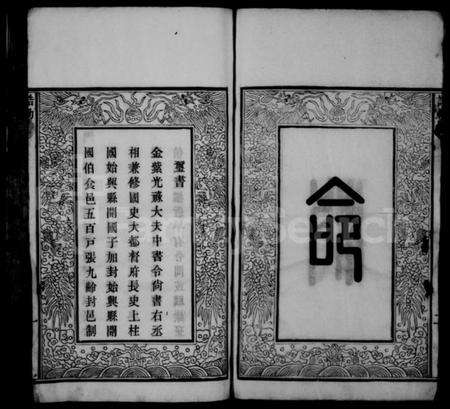 命
璽書
金紫光祿大夫中書令尚書右丞
相兼修國史大都督府長史上柱
國始興縣開國子加封始興縣開
國伯食邑五百戸張九齡封邑制